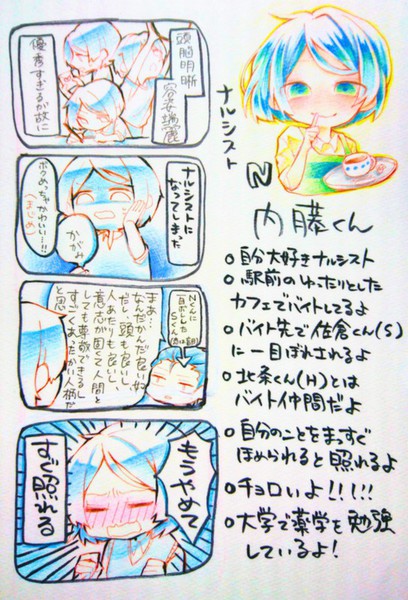 頭脳明晰
容姿端麗
優秀すぎるが故に
ナルシストに
なってしまった
かがみ
ボクめっちゃかわいー…!!
(まじめ)
Nくんに
一目ボレした
Sくん
まあ、
なんだかんだ良い奴
だし、頭も良いし
人あたりも良いし、
意志が固くて人間と
しても尊敬できるし
すごくあったかい人柄だ
と思
もうやめて
すぐ照れる
ナルシスト
N
内藤くん
自分大好きナルシスト
駅前のゆったりとした
カフェでバイトしてるよ
バイト先で佐倉くん(S)
に一目ぼれされるよ
北条くん(H)とは
バイト仲間だよ
自分のことをまっすぐ
ほめられると照れるよ
チョロいよ!!!!!
大学で薬学を勉強
しているよ!